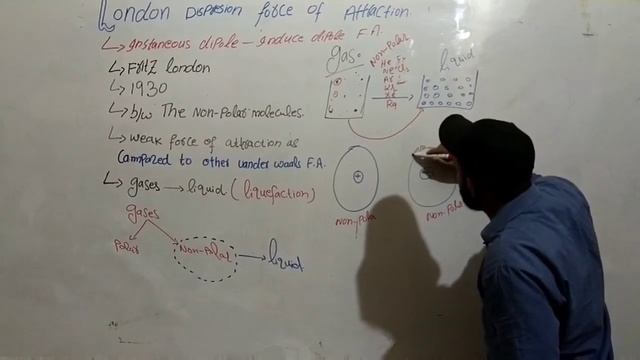 London Dispersion force of Attraction.
↳ Instaneous dipole - Induce dipole F.A.
↳ Fritz London
↳ 1930
↳ b/w The Non-Polar molecules.
↳ weak force of attraction as
Compared to other vander waals F.A.
↳ gases → liquid (liquefaction)
gases
Polar
Non-Polar → liquid
gas.
Non-Polar
He
Ne
Ar
Kr
Xe
Rn
liquid
+
Non-Pola
Non-Pola